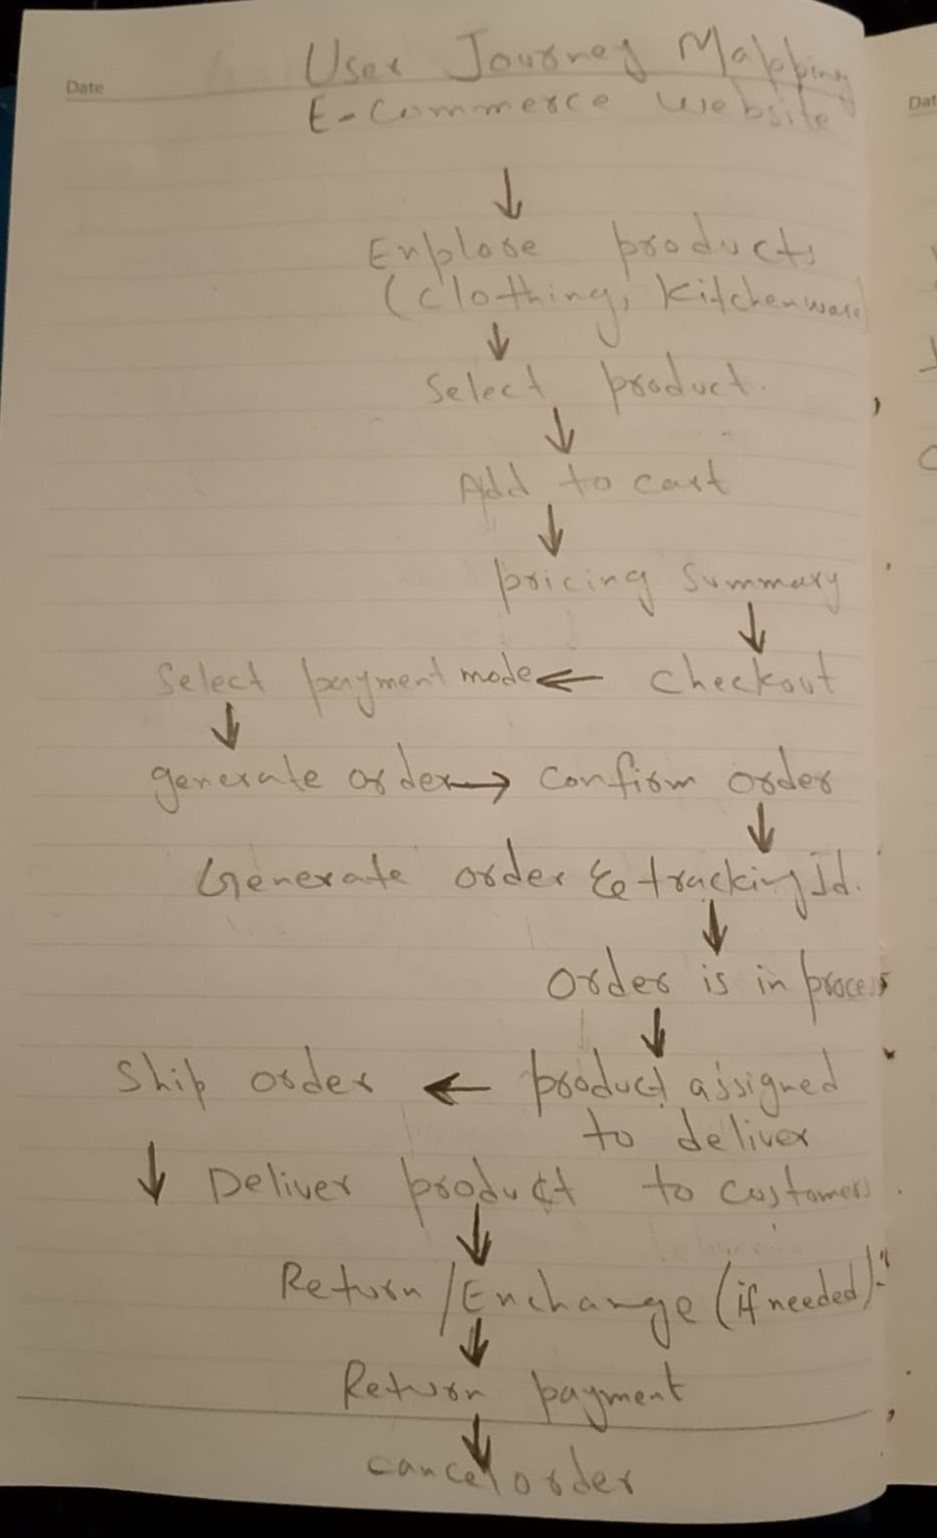 Date
User Journey Mapping
E-Commerce website
↓
Explore products
(Clothing, Kitchenware
↓
Select product.
↓
Add to cart
↓
pricing Summary
↓
Select payment mode ← checkout
↓
generate order → confirm order
↓
Generate order & tracking Id.
↓
Order is in process
↓
Ship order ← product assigned
to deliver
↓ Deliver product to customers
↓
Return/Exchange (if needed)
↓
Return payment
↓
cancel order